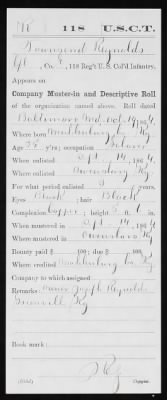 R 118 U.S.C.T.
Townsend Reynolds
Co. , 118 Reg't U. S. Col'd Infantry.
Appears on
Company Muster-in and Descriptive Roll
of the organization named above. Roll dated
Baltimore Md. Oct 19, 1864
Where born Muhlenburg Co, Ky
Age yrs; occupation Laborer
When enlisted Sept. 14, 1864
Where enlisted Owensboro Ky
For what period enlisted 3 years.
Eyes Black; hair Black
Complexion Copper; height 5 ft. in.
When mustered in Sept. 14, 1864
Where mustered in Owensboro Ky
Bounty paid $ 100; due $ 100
Where credited Muhlenburg Co. Ky
Company to which assigned
Remarks: Owner Joseph Reynolds
Greenville Ky
Book mark:
Copyist.